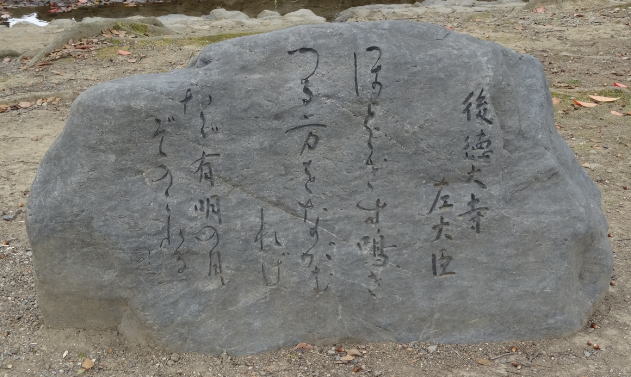 後徳大寺
左大臣
ほとゝぎす鳴き
つる方をながむ
れば
たゞ有明の月
ぞのこれる